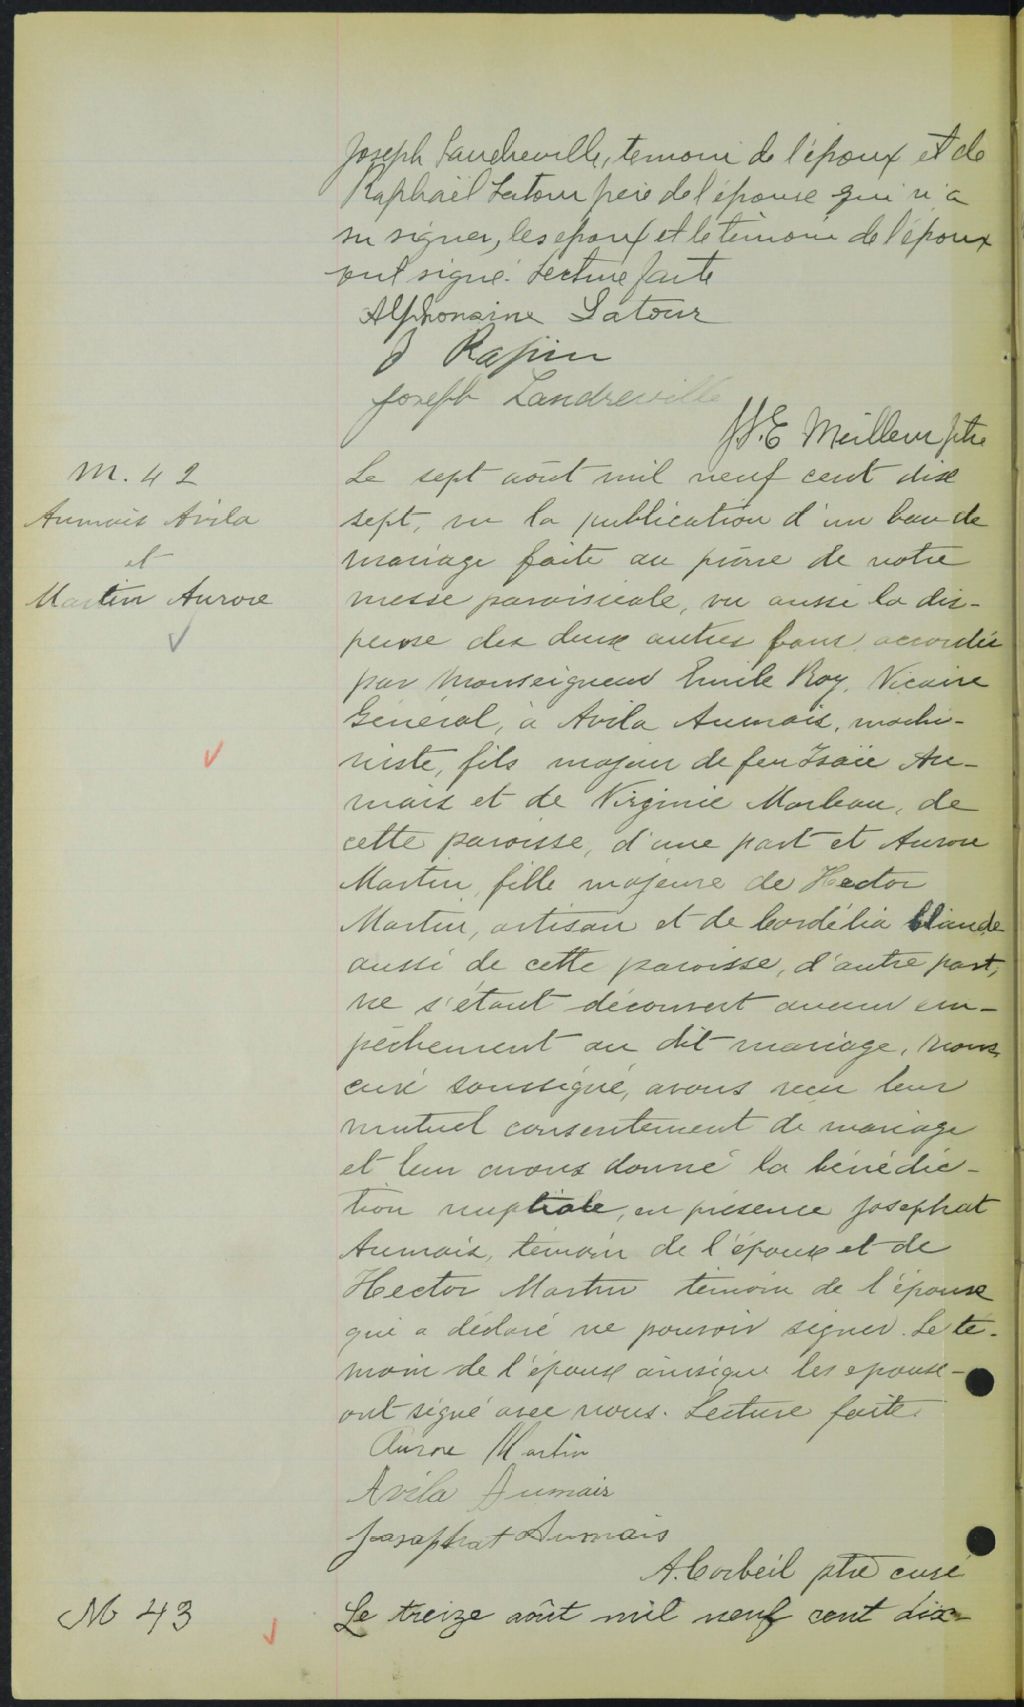 Joseph Landreville, temoin de l'époux et de
Raphaël Latour père de l'épouse qui n'a
su signer, les epoux et le témoin de l'époux
ont signé. Lecture faite
Alphonsine Latour
J Rapin
Joseph Landreville
J.E Meilleur ptre
M. 42
Aumais Avila
et
Martin Aurore
Le sept août mil neuf cent dix
sept, vu la publication d'un ban de
mariage faite au prône de notre
messe paroissiale, vu aussi la dis-
pense des deux autres bans accordée
par Monseigneur Emile Roy, Vicaire
Général, à Avila Aumais, machi-
niste, fils majeur de feu Isaïe Au-
mais et de Virginie Morleau, de
cette paroisse, d'une part et Aurore
Martin, fille majeure de Hector
Martin, artisan et de Cordélia
aussi de cette paroisse, d'autre part,
ne s'étant découvert aucun em-
pêchement au dit mariage, nous
curé soussigné, avons reçu leur
mutuel consentement de mariage
et leur avons donné la bénédic-
tion nuptiale, en présence Josephat
Aumais, témoin de l'époux et de
Hector Martin témoin de l'épouse
qui a déclaré ne pouvoir signer. Le té-
moin de l'époux ainsique les epoux-
ont signé avec nous. Lecture faite.
Aurore Martin
Avila Aumais
Josaphat Aumais
A. Corbeil ptre curé
M 43
Le treize août mil neuf cent dix-